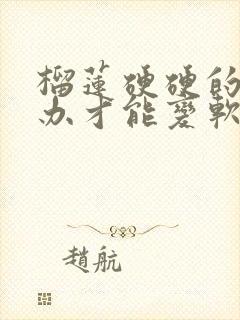 榴蓮硬硬的
办才能變軟
趙航